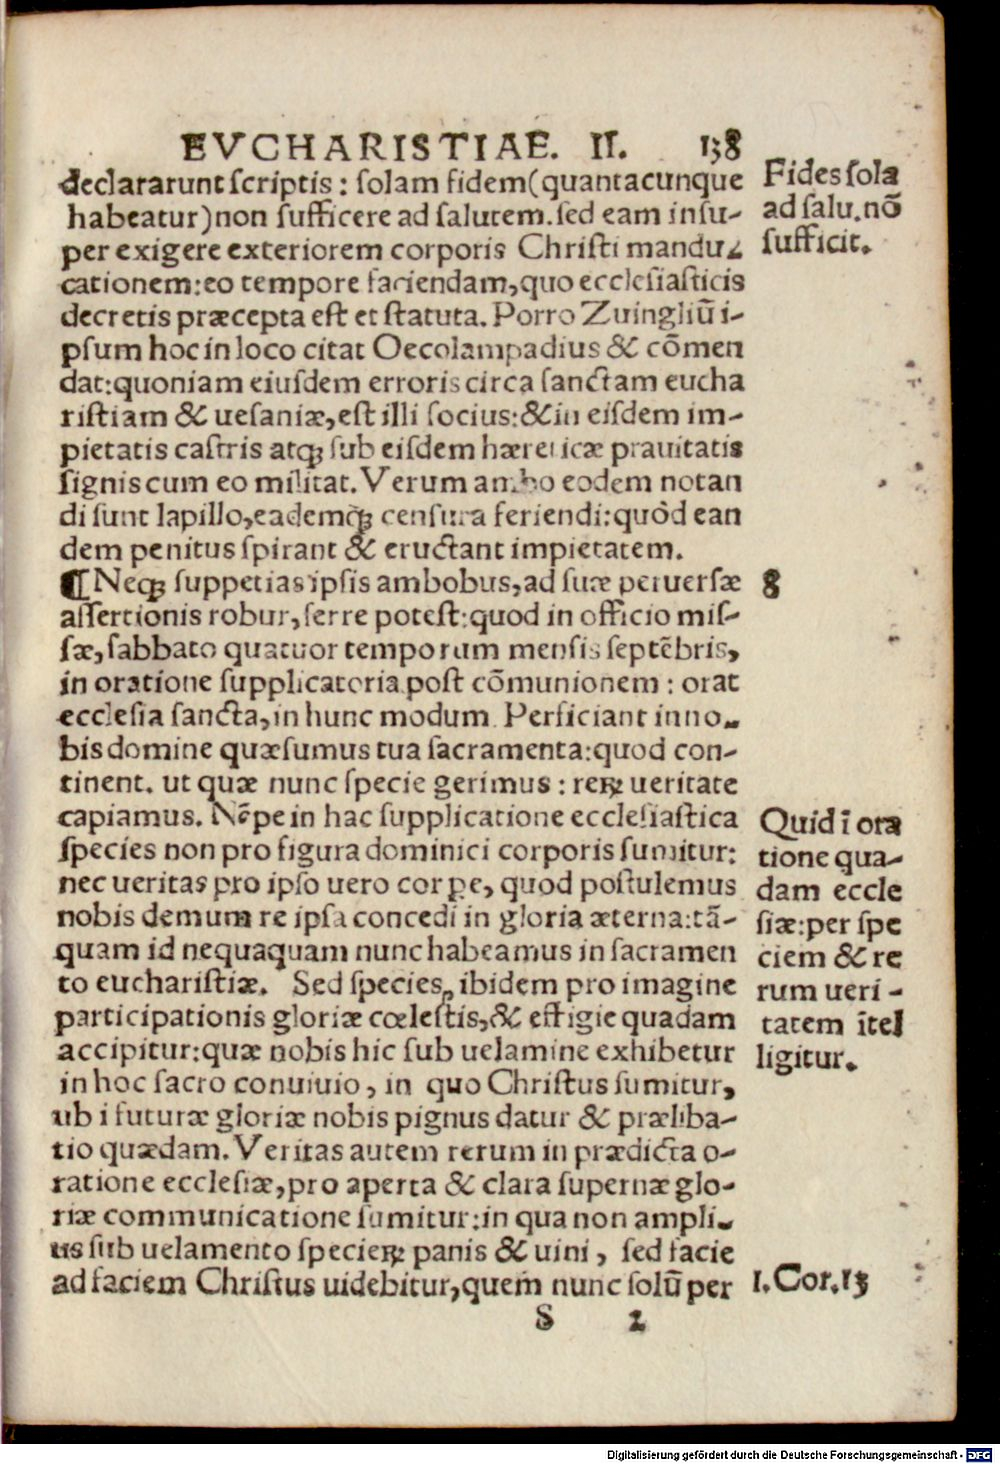 EVCHARISTIAE. II. 138
declararunt scriptis: solam fidem(quantacunque
habeatur)non sufficere ad salutem.sed eam insu-
per exigere exteriorem corporis Christi mandu-
cationem:eo tempore faciendam,quo ecclesiasticis
decretis præcepta est et statuta. Porro Zuingliũ i-
psum hoc in loco citat Oecolampadius & cõmen
dat:quoniam eiusdem erroris circa sanctam eucha
ristiam & uesaniæ,est illi socius:& in eisdem im-
pietatis castris atqꝫ sub eisdem hæreticæ prauitatis
signis cum eo militat. Verum ambo eodem notan
di sunt lapillo,eademqꝫ censura feriendi:quòd ean
dem penitus spirant & eructant impietatem.
¶ Neqꝫ suppetias ipsis ambobus,ad suæ peruersæ
assertionis robur,ferre potest:quod in officio mis-
sæ,sabbato quatuor temporum mensis septẽbris,
in oratione supplicatoria post cõmunionem: orat
ecclesia sancta,in hunc modum. Perficiant in no-
bis domine quæsumus tua sacramenta:quod con-
tinent. ut quæ nunc specie gerimus: rerꝝ ueritate
capiamus. Nẽpe in hac supplicatione ecclesiastica
species non pro figura dominici corporis sumitur:
nec ueritas pro ipso uero corpe, quod postulemus
nobis demum re ipsa concedi in gloria æterna:tã-
quam id nequaquam nunc habeamus in sacramen
to eucharistiæ. Sed species, ibidem pro imagine
participationis gloriæ cœlestis,& effigie quadam
accipitur:quæ nobis hic sub uelamine exhibetur
in hoc sacro conuiuio, in quo Christus sumitur,
ub i futuræ gloriæ nobis pignus datur & præliba-
tio quædam. Veritas autem rerum in prædicta o-
ratione ecclesiæ,pro aperta & clara supernæ glo-
riæ communicatione sumitur:in qua non ampli-
us sub uelamento specierꝝ panis & uini, sed facie
ad faciem Christus uidebitur,quem nunc solũ per
S 2
Fides sola
ad salu.nõ
sufficit.
8
Quid ĩ ora
tione qua-
dam eccle
siæ:per spe
ciem & re
rum ueri-
tatem ĩtel
ligitur.
1.Cor.13
Digitalisierung gefördert durch die Deutsche Forschungsgemeinschaft - DFG